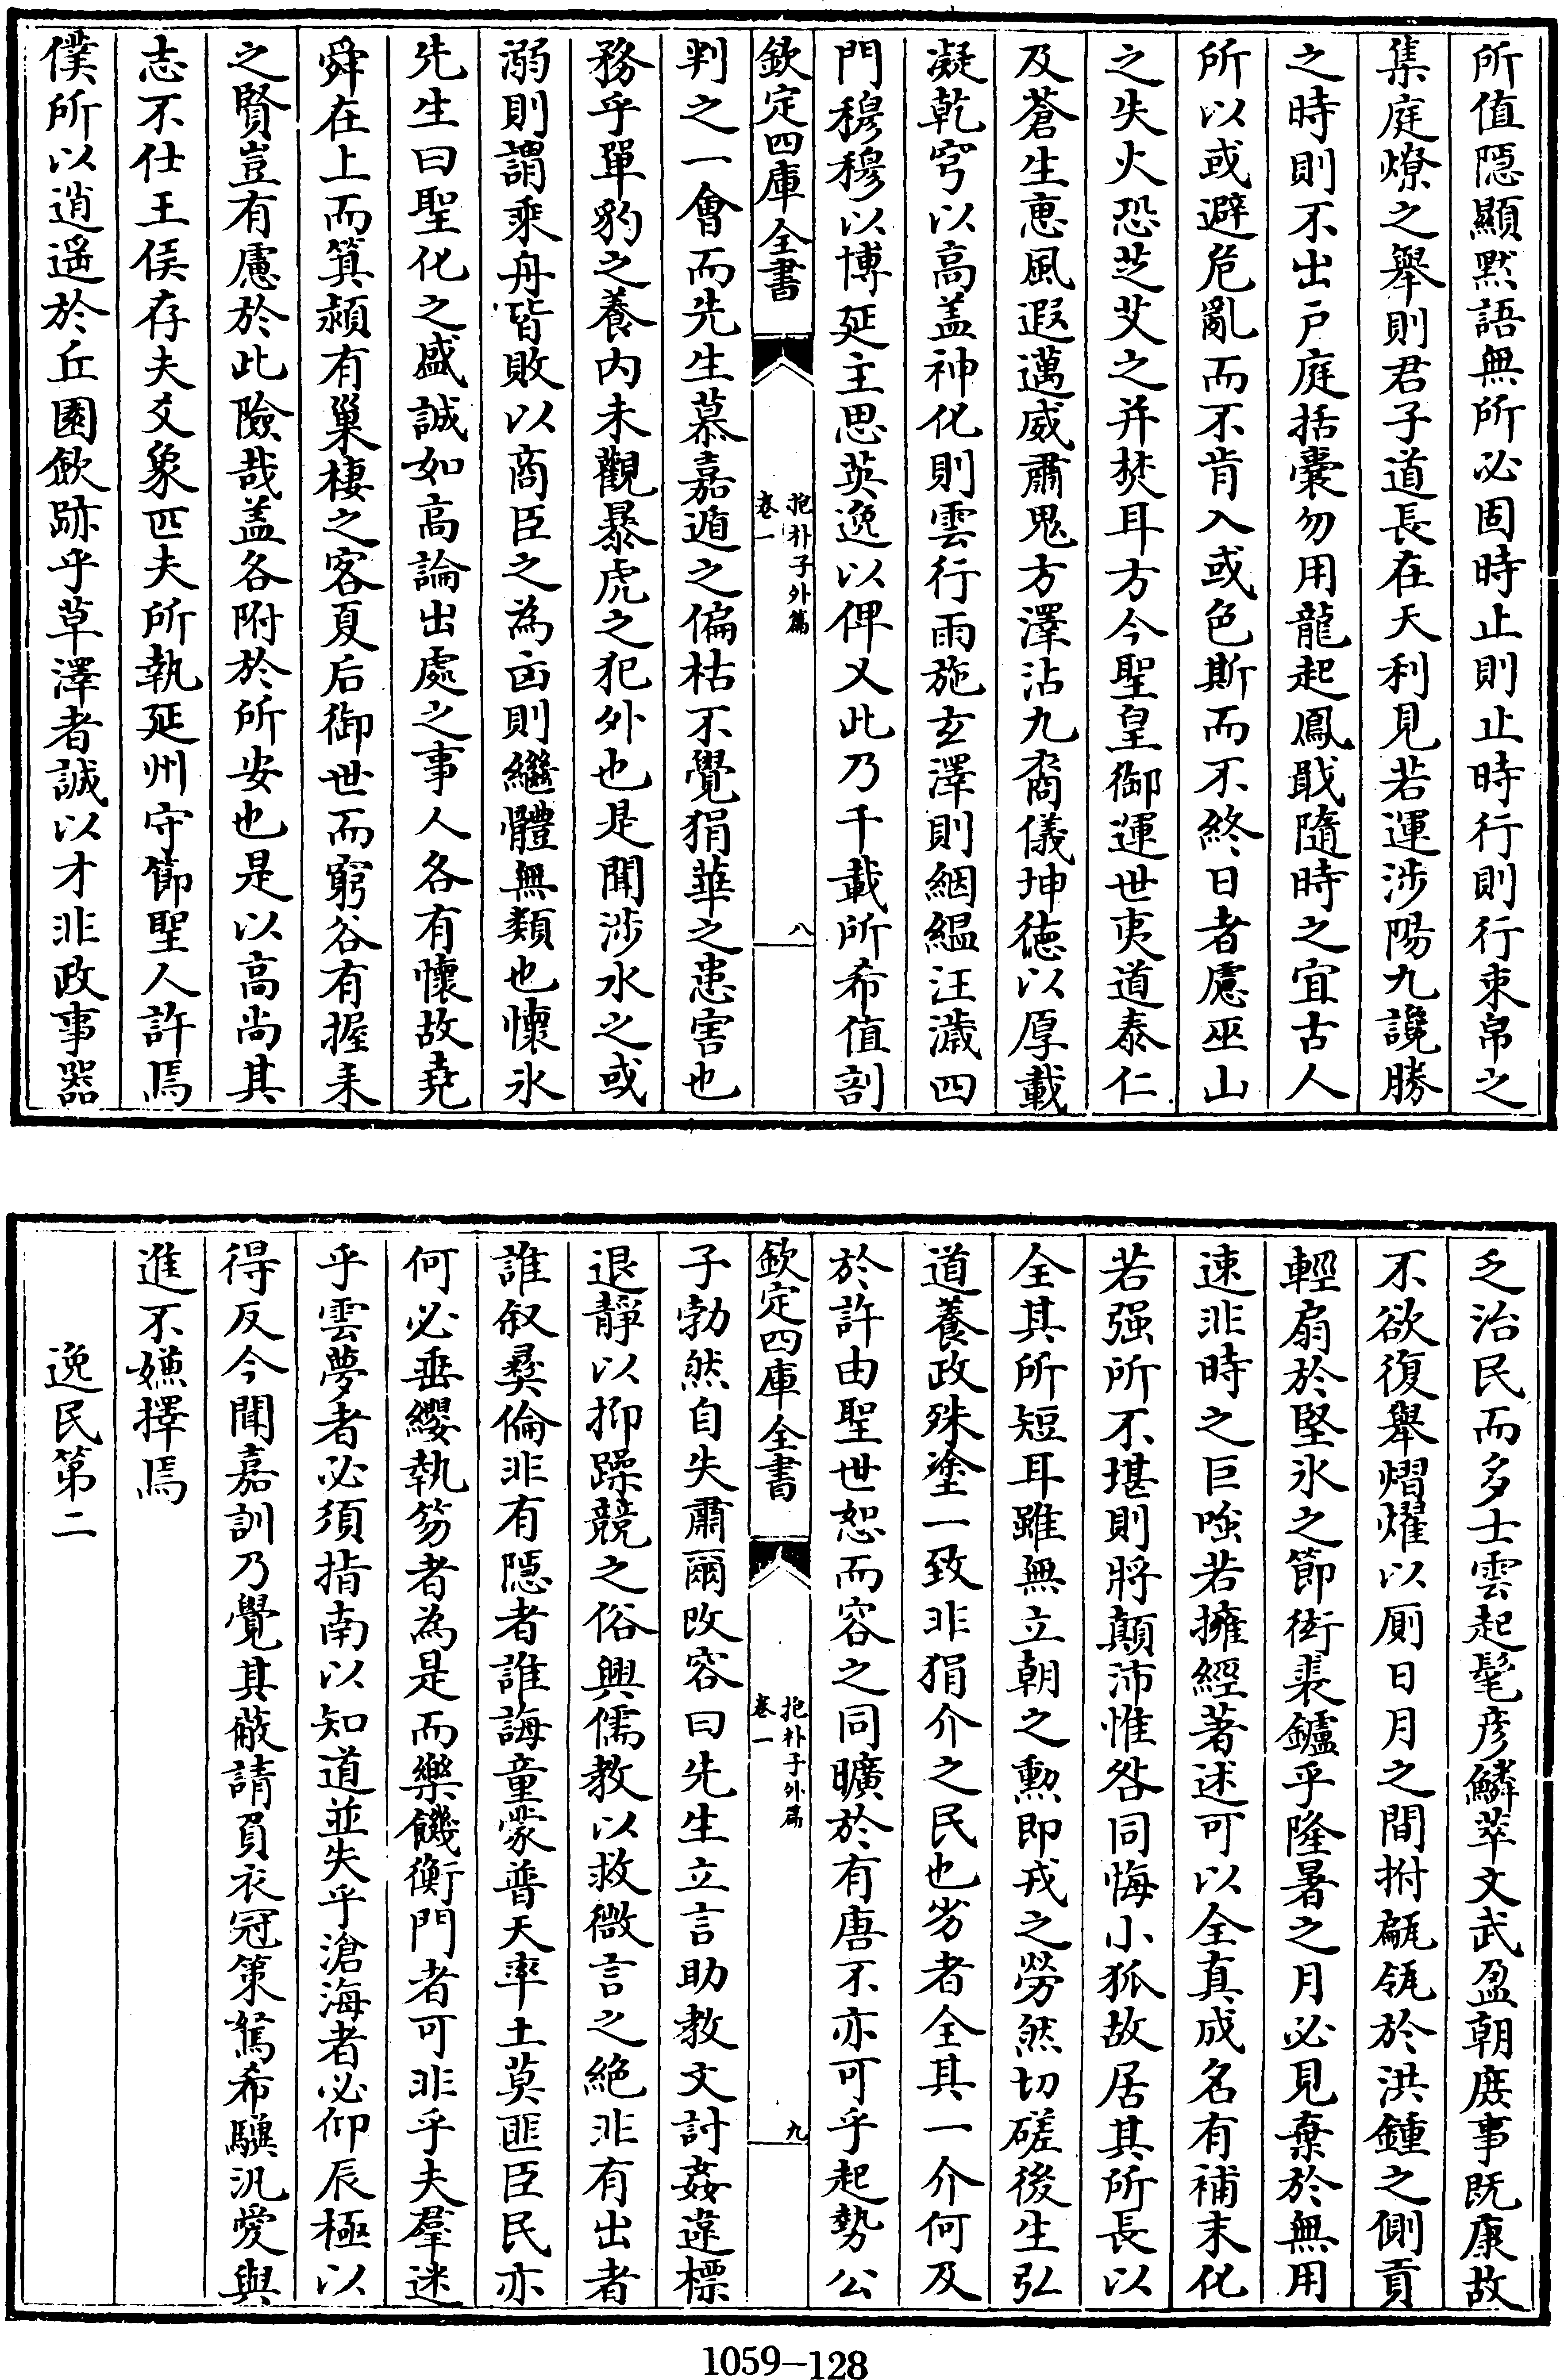 所值隠顯黙語無所必固時止則止時行則行束帛之
集庭燎之舉則君子道長在天利見若運渉陽九讒勝
之時則不出戸庭括囊勿用龍起鳳戢隨時之宜古人
所以或避危亂而不肯入或色斯而不終日者慮巫山
之失火恐芝艾之并焚耳方今聖皇御運世夷道泰仁
及蒼生恵風遐邁威肅鬼方澤沾九裔儀坤徳以厚載
凝乾穹以高盖神化則雲行雨施玄澤則絪緼汪濊四
門穆穆以博延主思英逸以俾乂此乃千載所希值剖
欽定四庫全書
抱朴子外篇
卷一
八
判之一會而先生慕嘉遁之偏枯不覺狷華之患害也
務乎單豹之養内未覩暴虎之犯外也是聞渉水之或
溺則謂乘舟皆敗以商臣之為凶則繼體無類也懷氷
先生曰聖化之盛誠如高論出處之事人各有懷故堯
舜在上而箕潁有巢棲之客夏后御世而窮谷有握耒
之賢豈有慮於此險哉盖各附於所安也是以高尚其
志不仕王侯存夫爻象匹夫所執延州守節聖人許焉
僕所以逍遥於丘園歛跡乎草澤者誠以才非政事器
乏治民而多士雲起髦彦鱗萃文武盈朝庶事既康故
不欲復舉熠燿以厠日月之間拊瓴瓴於洪鍾之側貢
輕扇於堅氷之節衒裘鑪乎隆暑之月必見棄於無用
速非時之巨嗤若擁經著述可以全真成名有補末化
若强所不堪則將顛沛惟咎同悔小狐故居其所長以
全其所短耳雖無立朝之勲即戎之勞然切磋後生弘
道養政殊塗一致非狷介之民也劣者全其一介何及
於許由聖世恕而容之同曠於有唐不亦可乎起勢公
欽定四庫全書
抱朴子外篇
卷一
九
子勃然自失肅爾改容曰先生立言助教文討姦違標
退靜以抑躁競之俗興儒教以救微言之絶非有出者
誰叙彞倫非有隠者誰誨童蒙普天率土莫匪臣民亦
何必垂纓執笏者為是而樂饑衡門者可非乎夫羣迷
乎雲夢者必須指南以知道並失乎滄海者必仰辰極以
得反今聞嘉訓乃覺其蔽請負衣冠策駑希驥汎愛與
進不嫌擇焉
逸民第二
1059-128